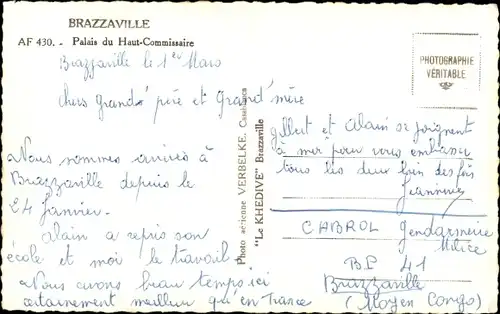 BRAZZAVILLE
AF 430. - Palais du Haut-Commissaire
Brazzaville le 1er Mars
chers grand' père et Grand'mère
Nous sommes arrivés à
Brazzaville depuis le
24 Janvier.
Alain a repris son
école et moi le travail
Nous avons beau temps ici
certainement meilleur qu'en France
Photo aérienne VERBELKE. Casablanca
"Le KHEDIVE" Brazzaville
PHOTOGRAPHIE
VÉRITABLE
Gilbert et Alain se joignent
à moi pour vous embrasser
tous les deux bien des fois
CABROL Gendarmerie
Milice
BP 41
Brazzaville
(Moyen Congo)